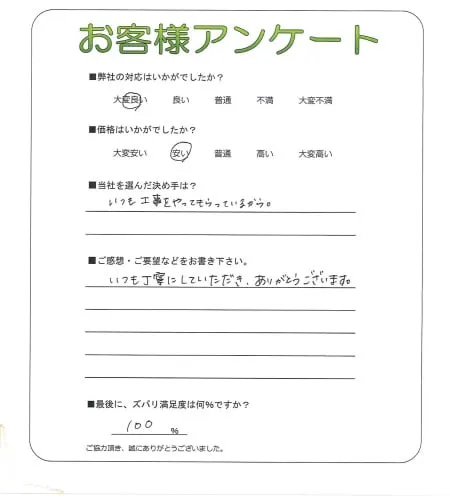 お客様アンケート
■弊社の対応はいかがでしたか？
大変良い 良い 普通 不満 大変不満
■価格はいかがでしたか？
大変安い 安い 普通 高い 大変高い
■当社を選んだ決め手は？
いつも工事をやってもらっているから。
■ご感想・ご要望などをお書き下さい。
いつも丁寧にしていただき、ありがとうございます。
■最後に、ズバリ満足度は何％ですか？
100 ％
ご協力頂き、誠にありがとうございました。